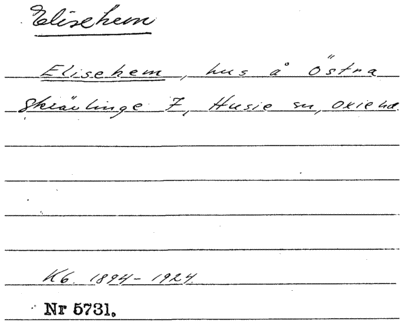 Elisehem
Elisehem, hus å Östra
Skrävlinge 7, Husie sn, Oxie hd.
Kb. 1894-1924
Nr 5731.